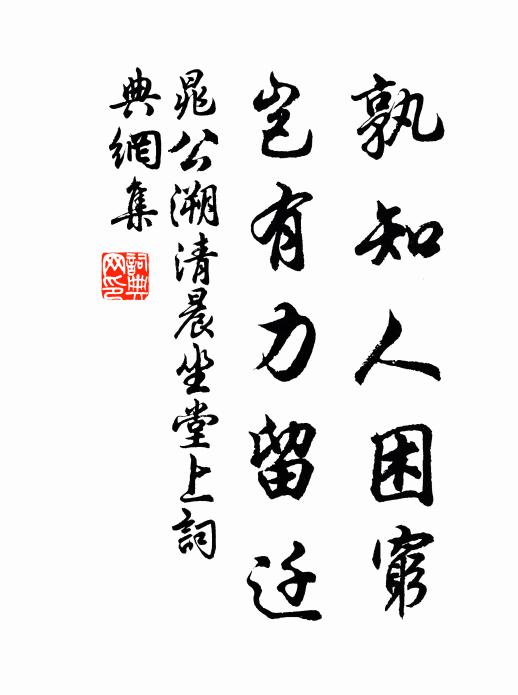 孰知人困窮
豈有力留迁
晁公溯清晨坐堂上詞
典網集
詞典网印